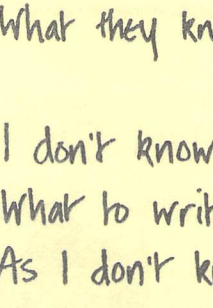 What they kn
I don't know
What to writ
As I don't k